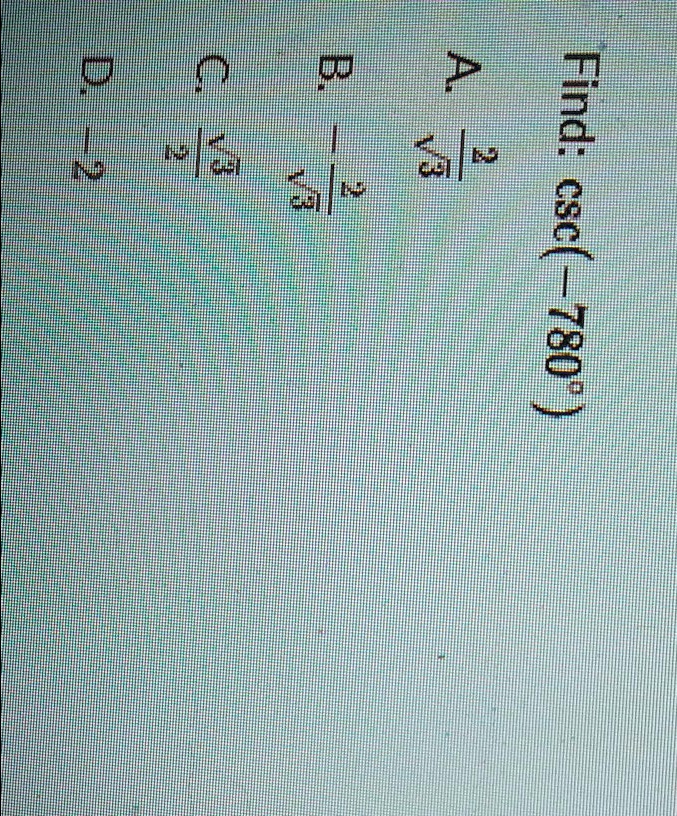 Find: csc(−780°)
A. 2/√3
B. −2/√3
C. √3/2
D. −2